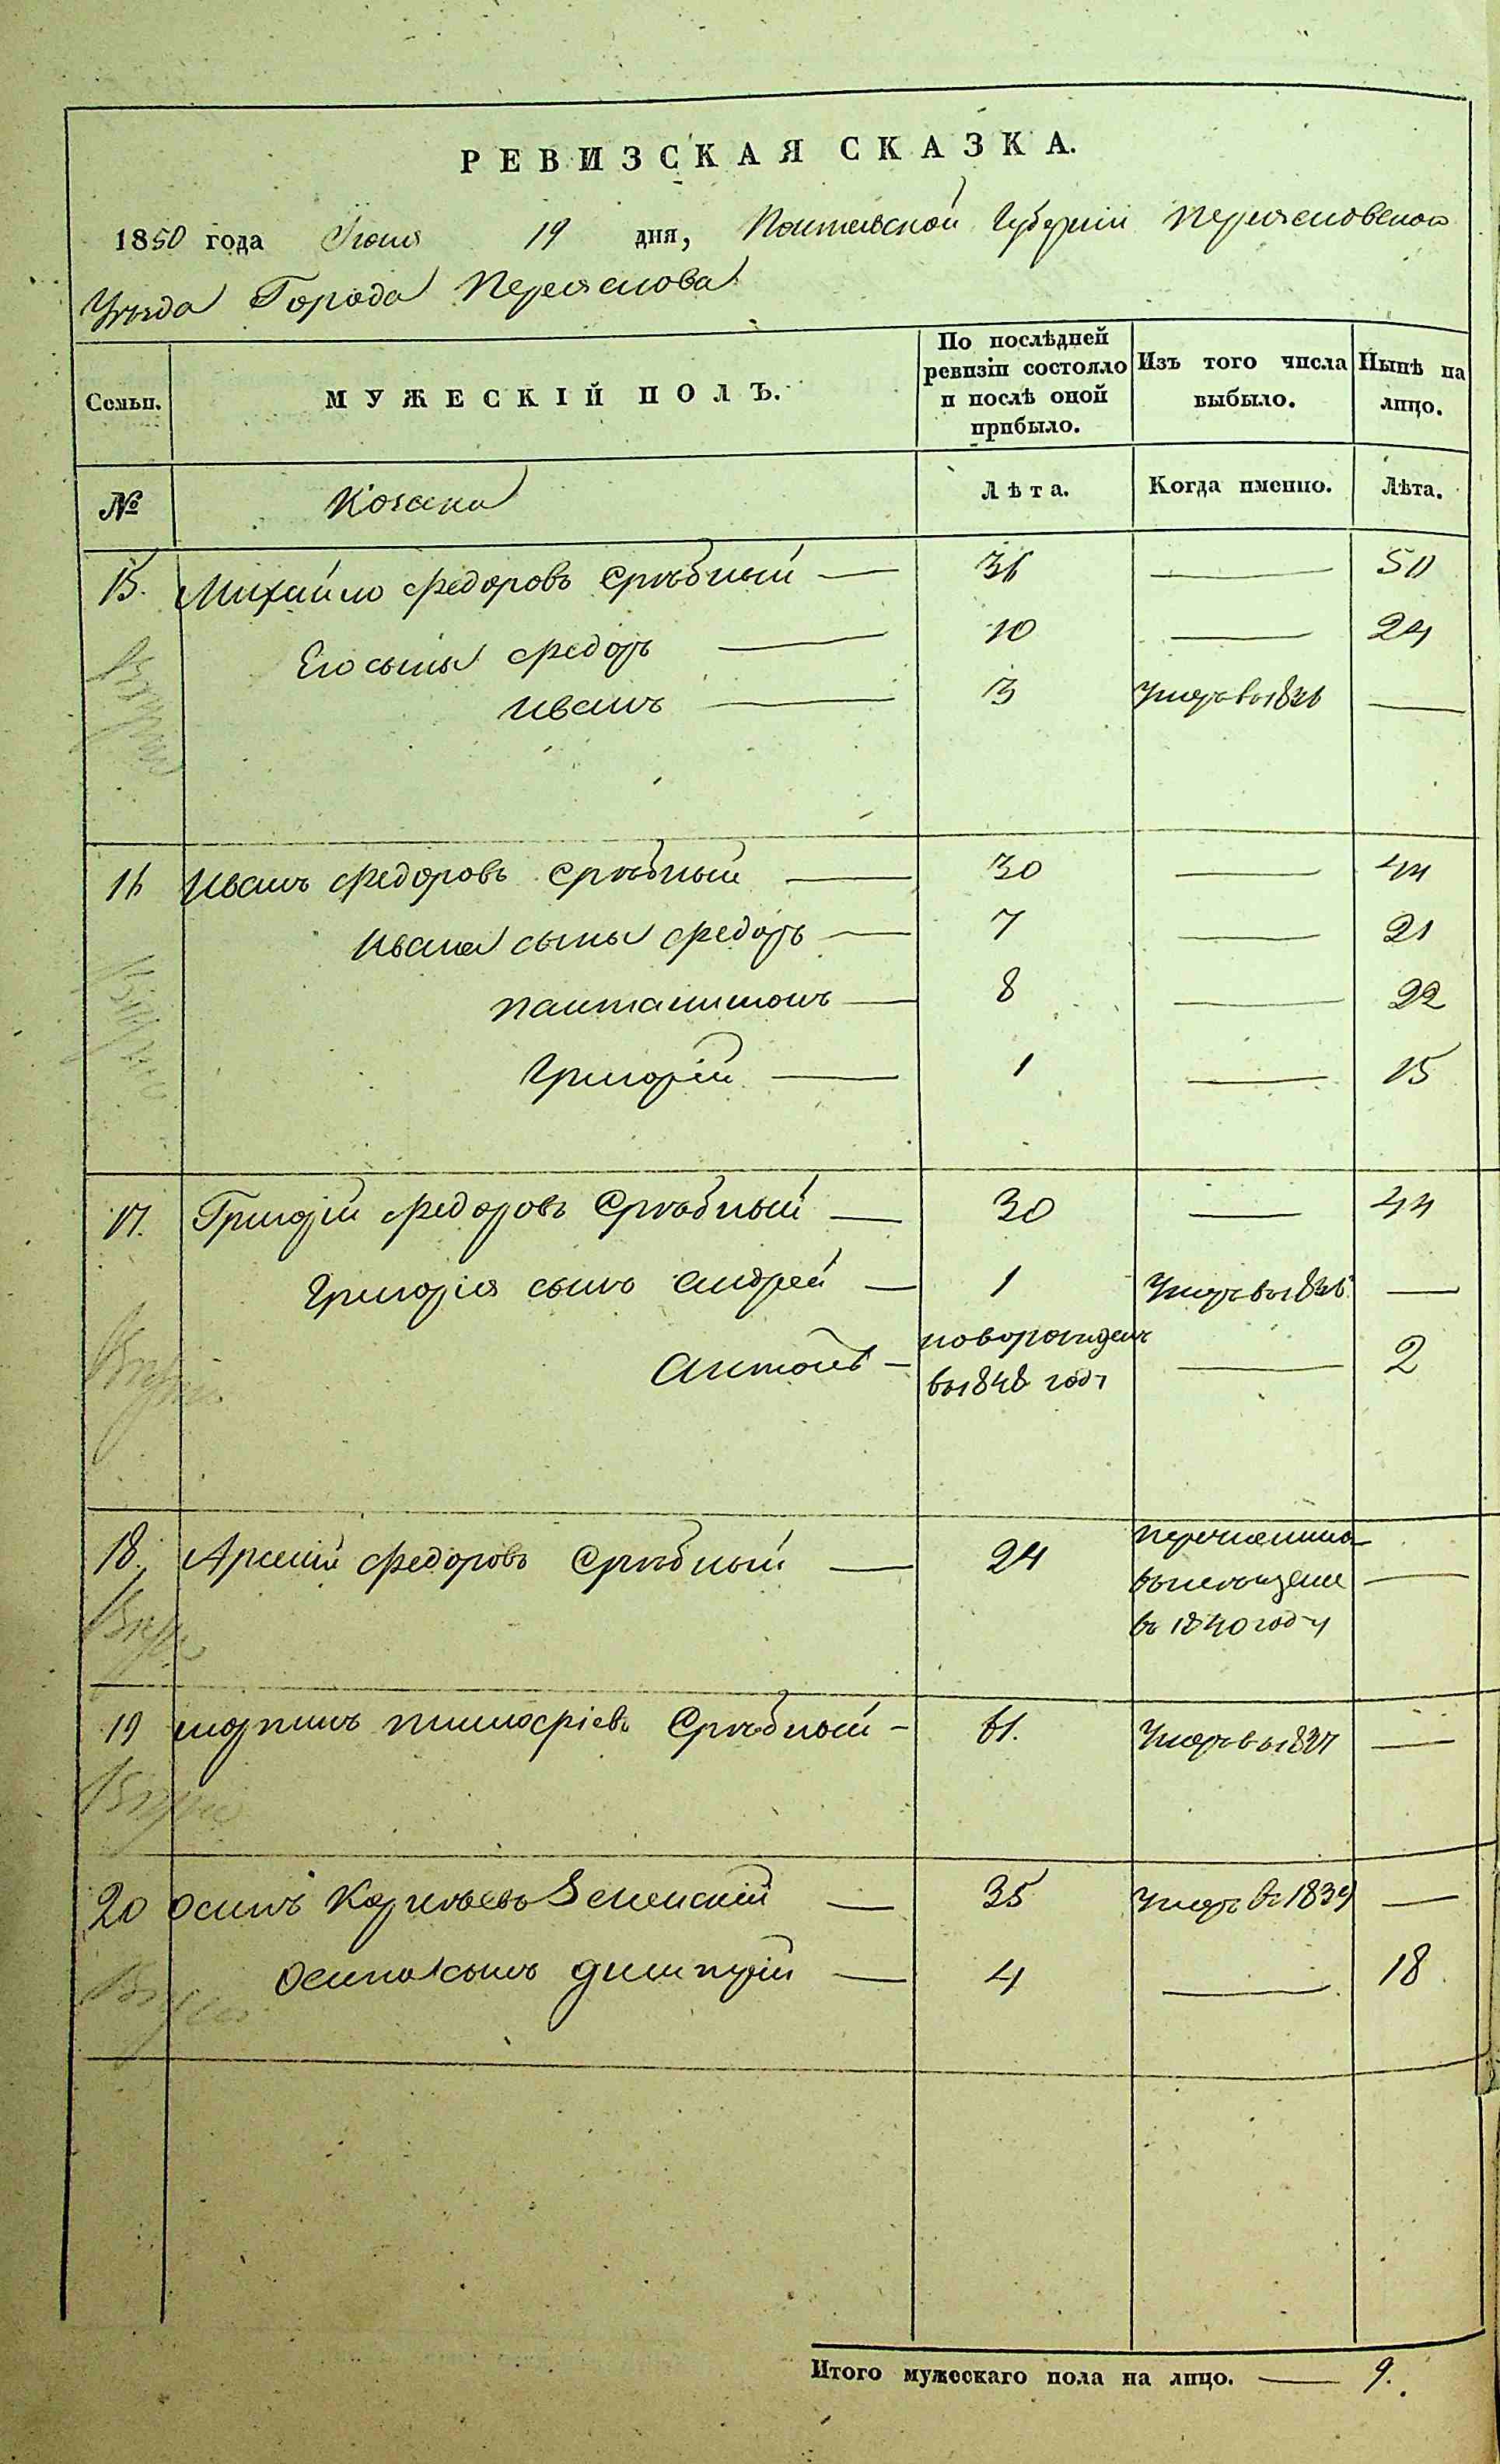 РЕВИЗСКАЯ СКАЗКА.
1850 года Июня 19 дня, Полтавской Губерніи Переясловского
Уѣзда Города Переяслова
Семьи. МУЖЕСКІЙ ПОЛЪ. По послѣдней ревизіи состояло и послѣ оной прибыло. Изъ того числа выбыло. Нынѣ на лицо.
№ Козаки Лѣта. Когда именно. Лѣта.
15. Михайло Федоровъ Срѣбный — 36 — 50
Его сыны Федоръ — 10 — 24
Иванъ — 13 умеръ в 1846 —
16 Иванъ Федоровъ Срѣбный — 30 — 44
Ивана сыны Федоръ — 7 — 21
Пантелимонъ — 8 — 22
Григорій — 1 — 15
17. Григорій Федоровъ Срѣбный — 30 — 44
Григорія сынъ Андрей — 1 умеръ в 1846 —
Антонъ — новорожденъ в 1848 году — 2
18. Арсеній Федоровъ Срѣбный — 24 перечисленъ в 1840 году —
19 Тимофіевъ Срѣбный — 61. Умеръ в 1837 —
20 Осипъ Корнѣевъ Зеленскій — 35 умеръ в 1839 —
Осипа сынъ Дмитрій — 4 — 18
Итого мужескаго пола на лицо. — 9.